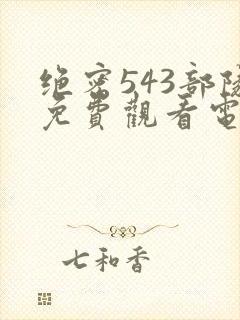 绝密543部隊
免費觀看電
七和香